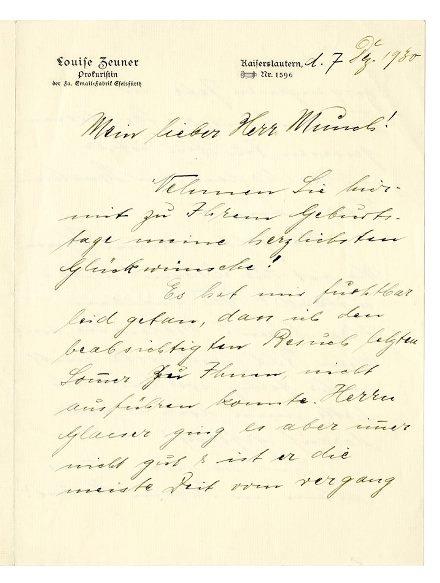 Louise Zeuner
Prokuristin
der Fa. Email-Fabrik Eselsfürth
Kaiserslautern, d. 7. Dez. 1930
Nr. 1596
Mein lieber Herr Munch!
Nehmen Sie hier-
mit zu Ihrem Geburts-
tage meine herzlichsten
Glückwünsche!
Es hat mir furchtbar
leid getan, dass ich den
beabsichtigten Besuch letzten
Sommer zu Ihnen, nicht
ausführen konnte. Herrn
Glaeser ging es aber immer
nicht gut & ist er die
meiste Zeit vom vergang